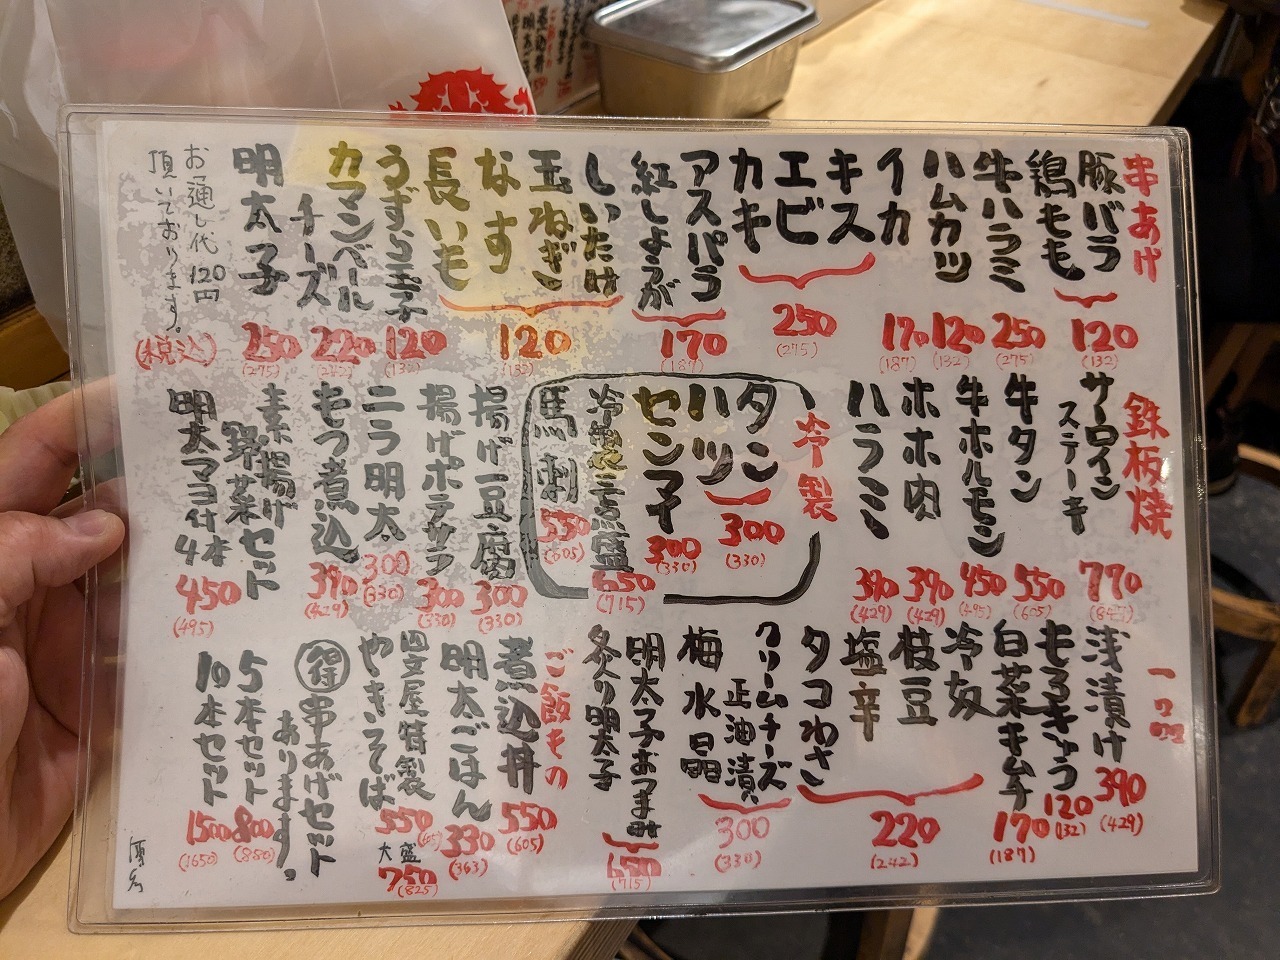 串あげ
豚バラ
鶏もも
120
(132)
牛ハラミ
250
(275)
ハムカツ
120
(132)
イカ
170
(187)
キス
エビ
カキ
250
(275)
アスパラ
紅しょうが
170
(187)
しいたけ
玉ねぎ
なす
長いも
120
(132)
うずら玉子
120
(132)
カマンベール
チーズ
220
(242)
明太子
250
(275)
お通し代 120円
頂いております。
(税込)
鉄板焼
サーロイン
ステーキ
770
(847)
牛タン
550
(605)
牛ホルモン
450
(495)
ホホ肉
390
(429)
ハラミ
390
(429)
冷製
タン
ハツ
300
(330)
センマイ
300
(330)
冷製三点盛
650
(715)
馬刺
550
(605)
揚げ豆腐
300
(330)
揚げポテサラ
300
(330)
ニラ明太
300
(330)
もつ煮込
390
(429)
素揚げ
野菜セット
明太マヨ付4本
450
(495)
一品
浅漬け
390
(429)
もろきゅう
120
(132)
白菜キムチ
170
(187)
冷奴
枝豆
塩辛
タコわさ
220
(242)
クリームチーズ
正油漬
梅水晶
300
(330)
明太子おつまみ
炙り明太子
650
(715)
ご飯もの
煮込丼
550
(605)
明太ごはん
330
(363)
四文屋特製
やきそば
550
(605)
大盛
750
(825)
得串あげセット
あります。
5本セット
800
(880)
10本セット
1500
(1650)